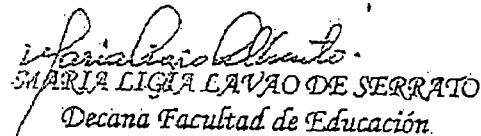 MARÍA LIGIA LAVAO DE SERRATO
Decana Facultad de Educación